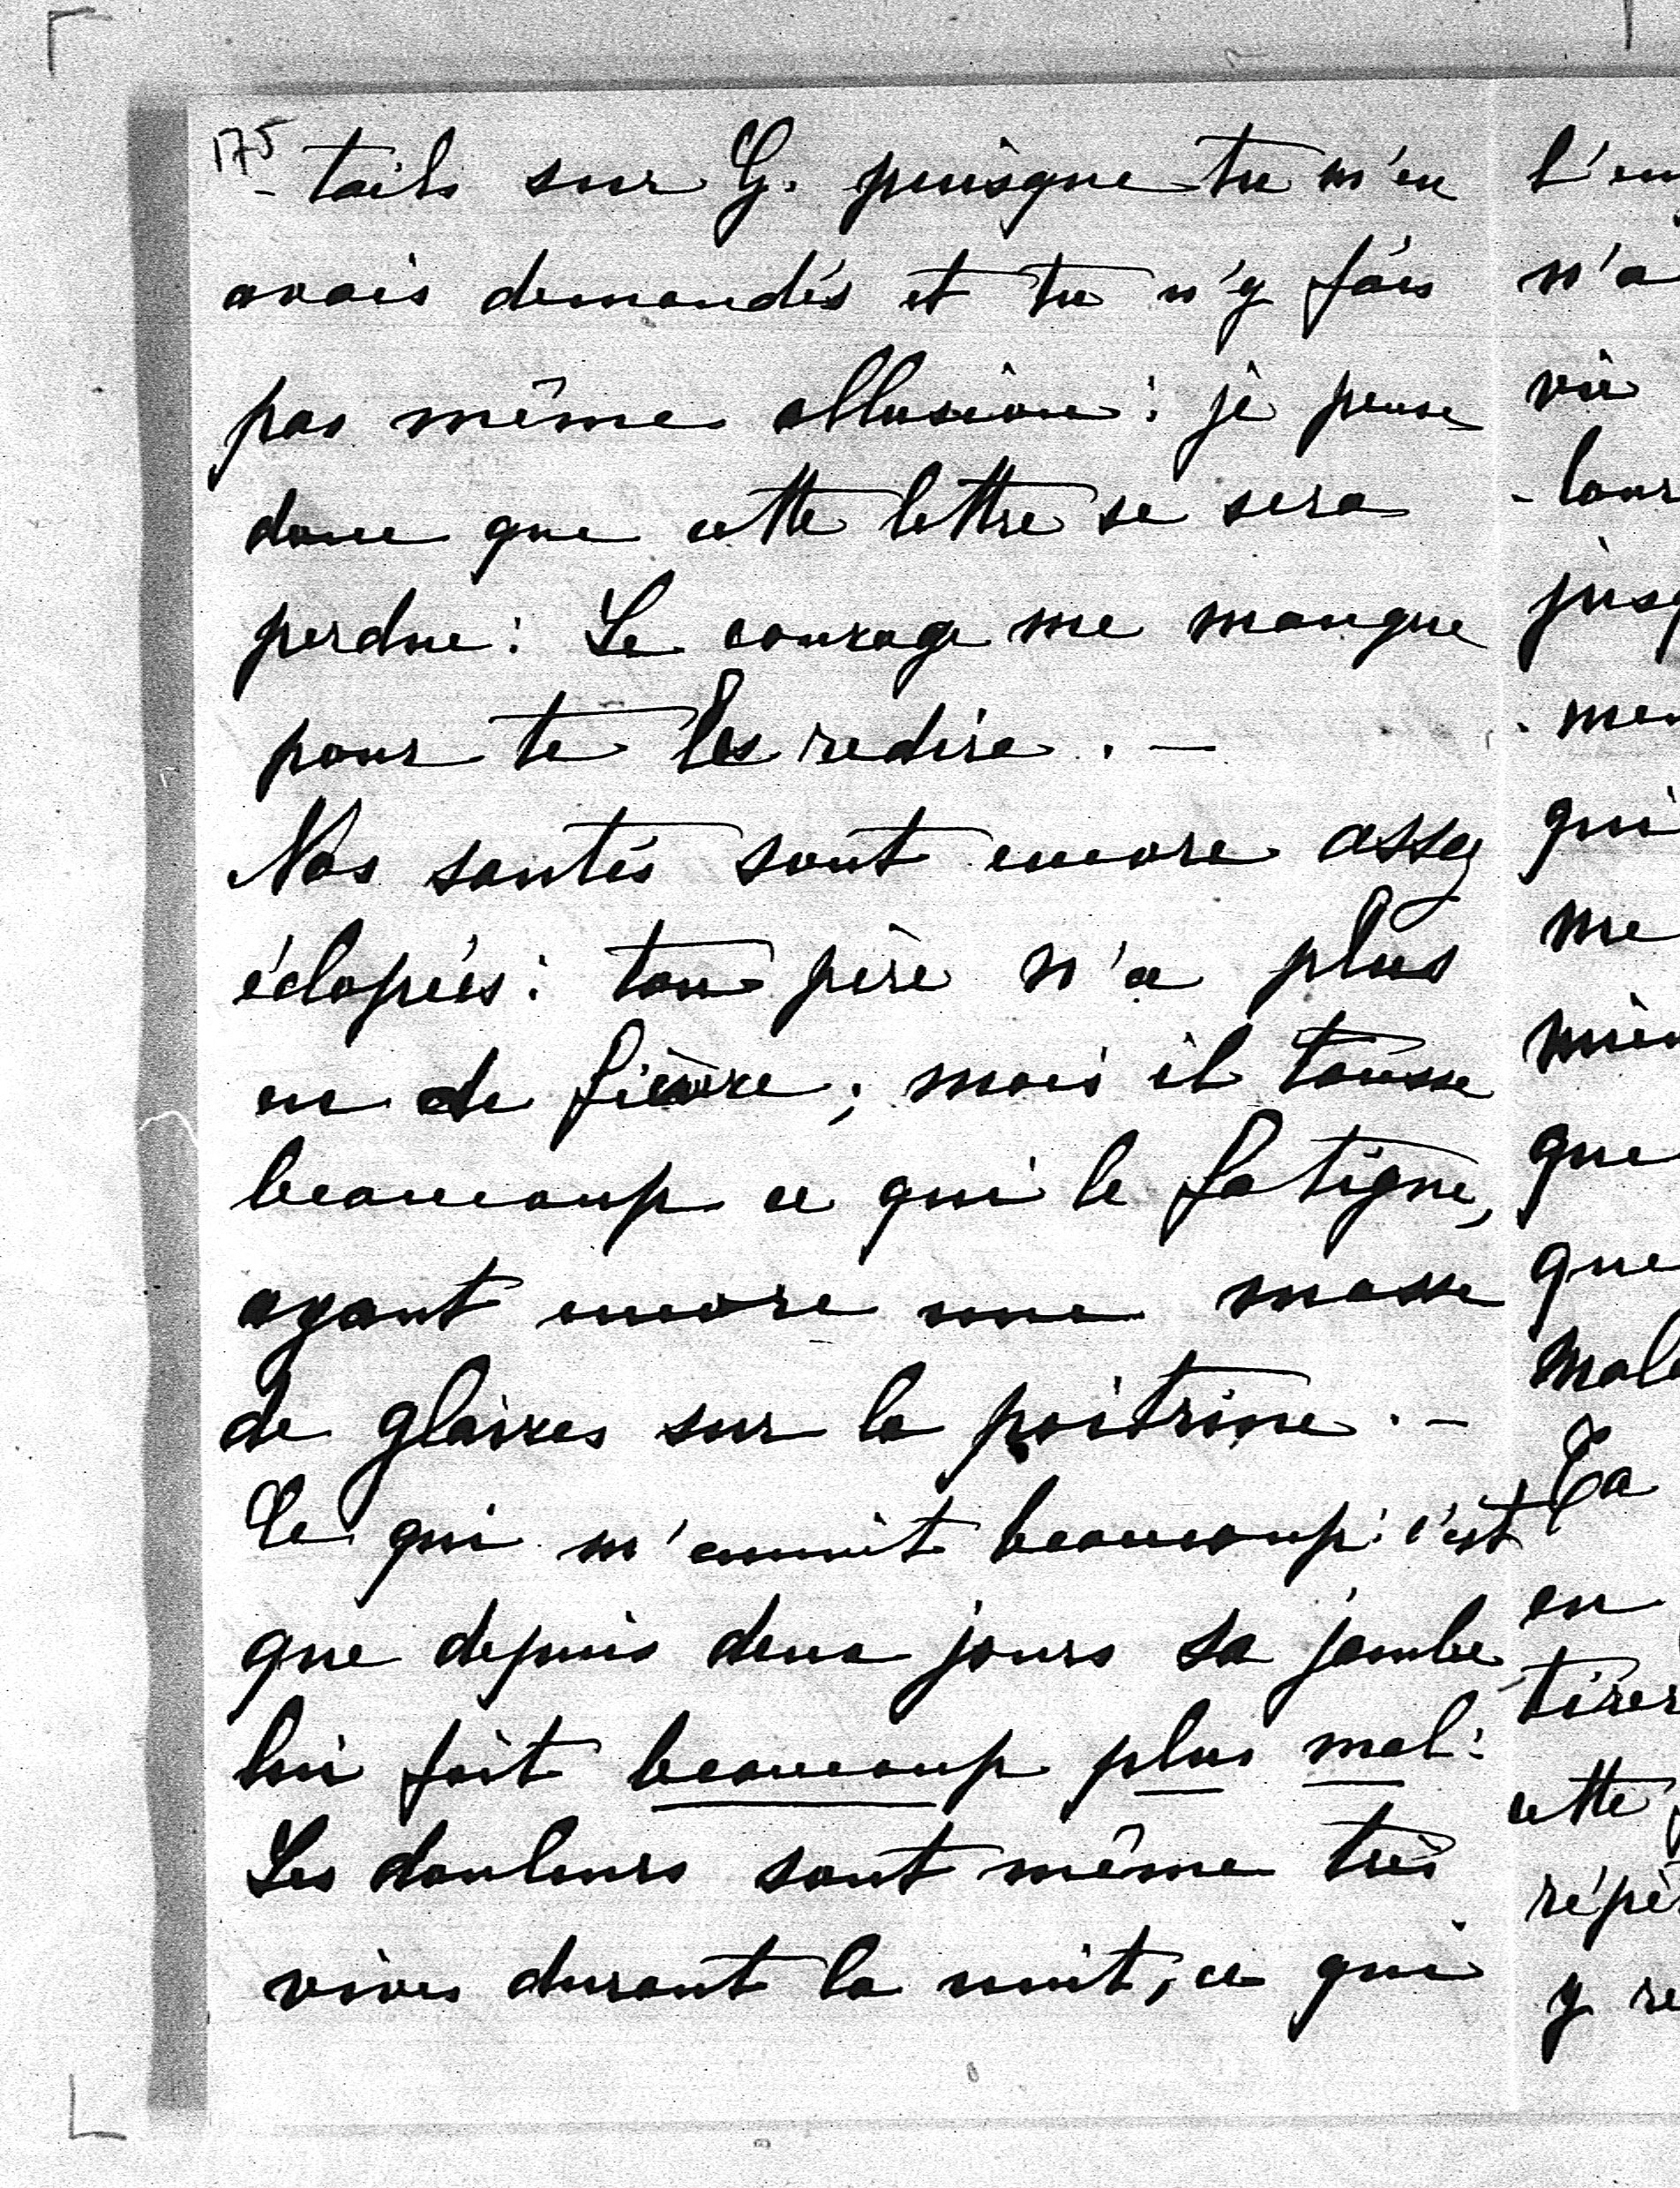 175
- tails sur G. puisque tu m'en
avais demandés et tu n'y fais
pas même allusion : je pense
donc que cette lettre se sera
perdue : Le courage me manque
pour te les redire . —
Nos santés sont encore assez
éclopées : ton père n'a plus
eu de fièvre ; mais il tousse
beaucoup ce qui le fatigue,
ayant encore une masse
de glaires sur la poitrine . —
Ce qui m'ennuit beaucoup c'est
que depuis deux jours sa jambe
lui fait beaucoup plus mal :
Les douleurs sont même très
vives durant la nuit, ce qui
l'en
n'a
vie
- lour
jusq
- men
qui
me
mieu
que
que
mal
Ta
en
tirer
cette
répè
y re